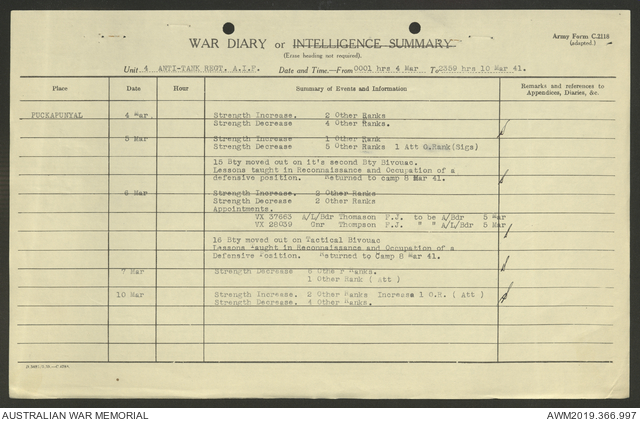 Army Form C.2118
(adapted.)
WAR DIARY or INTELLIGENCE SUMMARY
(Erase heading not required).
Unit 4 ANTI-TANK REGT. A.I.F. Date and Time.—From 0001 hrs 4 Mar To 2359 hrs 10 Mar 41.
Place Date Hour Summary of Events and Information Remarks and references to Appendices, Diaries, &c.
PUCKAPUNYAL 4 Mar Strength Increase. 2 Other Ranks
Strength Decrease 4 Other Ranks.
5 Mar Strength Increase 1 Other Rank
Strength Decrease 5 Other Ranks 1 Att O.Rank(Sigs)
15 Bty moved out on it's second Bty Bivouac.
Lessons taught in Reconnaissance and Occupation of a
defensive position. Returned to camp 8 Mar 41.
6 Mar Strength Increase. 2 Other Ranks
Strength Decrease 2 Other Ranks
Appointments.
VX 37663 A/L/Bdr Thomason F.J. to be A/Bdr 5 Mar
VX 28039 Gnr Thompson F.J. " " A/L/Bdr 5 Mar
16 Bty moved out on Tactical Bivouac
Lessons taught in Reconnaissance and Occupation of a
Defensive Position. Returned to Camp 8 Mar 41.
7 Mar Strength Decrease 6 Other Ranks.
1 Other Rank ( Att )
10 Mar Strength Increase. 2 Other Ranks Increase 1 O.R. ( Att )
Strength Decrease. 4 Other Ranks.
AUSTRALIAN WAR MEMORIAL
AWM2019.366.997